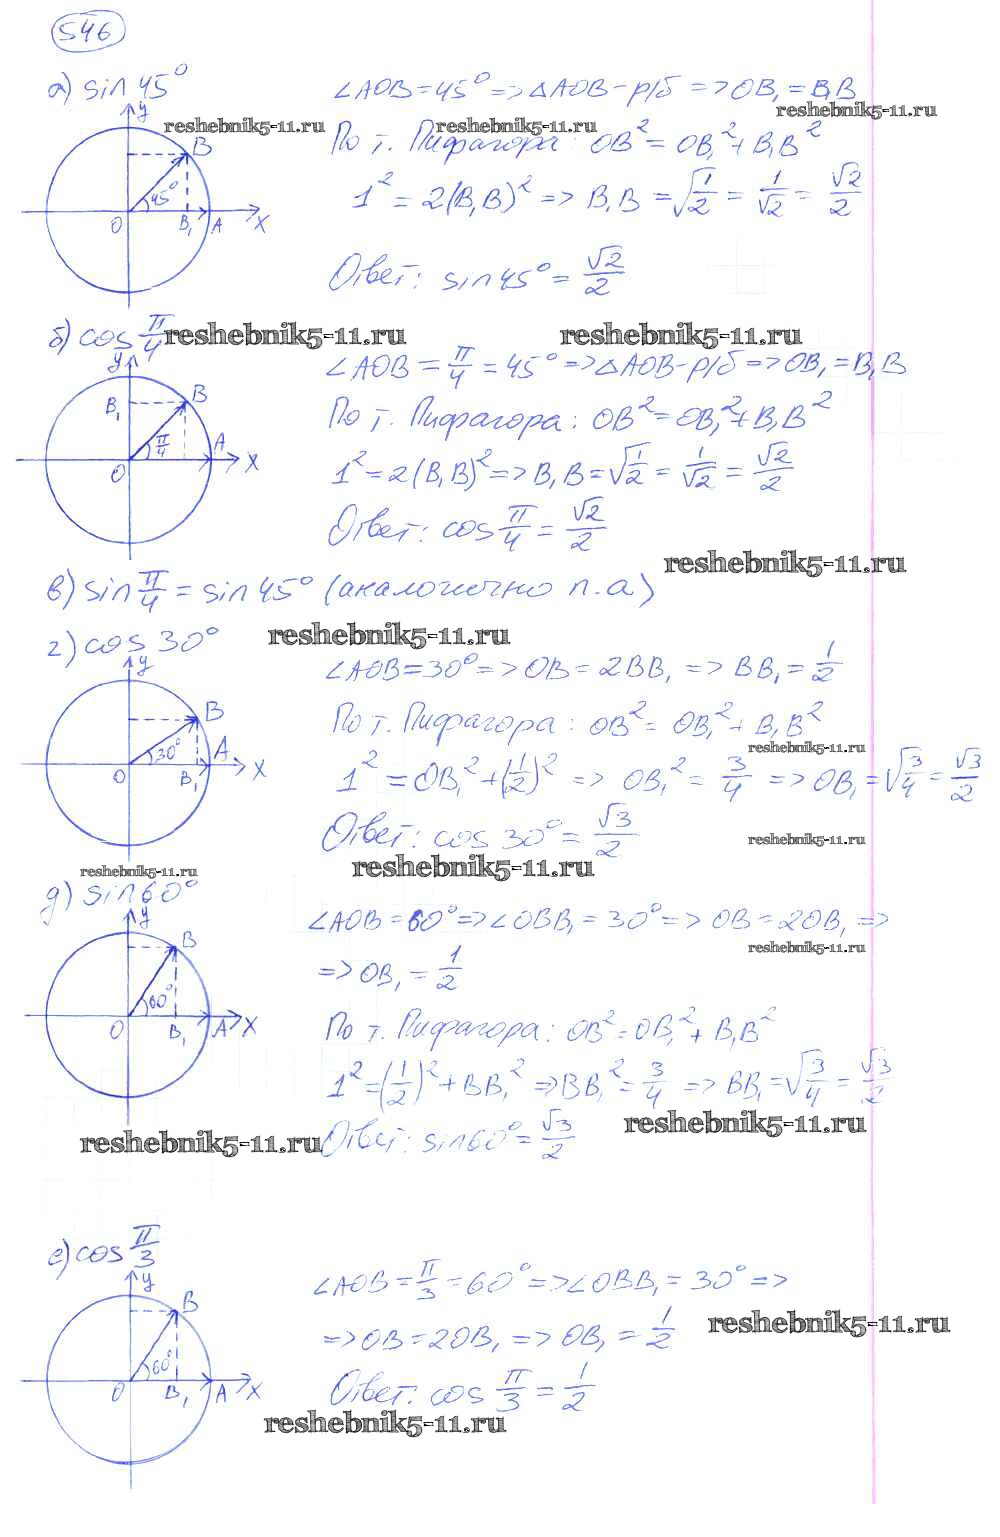 546
а) sin 45°
y
B
45°
O B₁ A X
∠AOB = 45° => △AOB – р/б => OB₁ = B₁B
reshebnik5-11.ru reshebnik5-11.ru reshebnik5-11.ru
По т. Пифагора: OB² = OB₁² + B₁B²
1² = 2(B₁B)² => B₁B = √1/2 = 1/√2 = √2/2
Ответ: sin 45° = √2/2
б) cos π/4
reshebnik5-11.ru reshebnik5-11.ru
y
B₁ B
π/4 A
O X
∠AOB = π/4 = 45° => △AOB – р/б => OB₁ = B₁B
По т. Пифагора: OB² = OB₁² + B₁B²
1² = 2(B₁B)² => B₁B = √1/2 = 1/√2 = √2/2
Ответ: cos π/4 = √2/2
reshebnik5-11.ru
в) sin π/4 = sin 45° (аналогично п. а)
reshebnik5-11.ru
г) cos 30°
y
B
30° A
O B₁ X
∠AOB = 30° => OB = 2BB₁ => BB₁ = 1/2
По т. Пифагора: OB² = OB₁² + B₁B²
reshebnik5-11.ru
1² = OB₁² + (1/2)² => OB₁² = 3/4 => OB₁ = √3/4 = √3/2
Ответ: cos 30° = √3/2
reshebnik5-11.ru
reshebnik5-11.ru reshebnik5-11.ru
д) sin 60°
y
B
60°
O B₁ A X
∠AOB = 60° => ∠OBB₁ = 30° => OB = 2OB₁ =>
reshebnik5-11.ru
=> OB₁ = 1/2
По т. Пифагора: OB² = OB₁² + B₁B²
1² = (1/2)² + BB₁² => BB₁² = 3/4 => BB₁ = √3/4 = √3/2
reshebnik5-11.ru reshebnik5-11.ru
Ответ: sin 60° = √3/2
е) cos π/3
y
B
60°
O B₁ A X
∠AOB = π/3 = 60° => ∠OBB₁ = 30° =>
=> OB = 2OB₁ => OB₁ = 1/2
reshebnik5-11.ru
Ответ: cos π/3 = 1/2
reshebnik5-11.ru